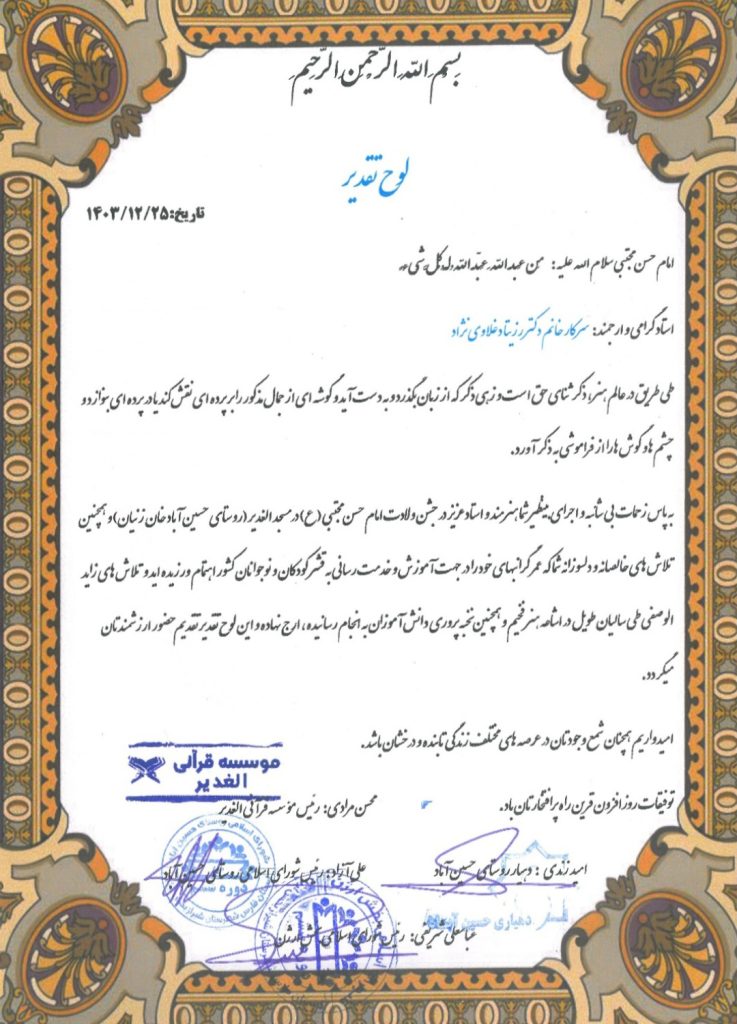 بسم الله الرحمن الرحیم
لوح تقدیر
تاریخ:۱۴۰۳/۱۲/۲۵
امام حسن مجتبی سلام الله علیه: من عبدالله عبّدالله له کل شیء
استاد گرامی و ارجمند: سرکار خانم دکتر رزیتا دغلاوی نژاد
طی طریق در عالم هنر، ذکر ثنای حق است و زهی ذکر که از زبان بگذرد و به دست آید و گوشه ای از جمال مذکور را بر پرده ای نقش کند یا در پرده ای بنوازد و
چشم ها و گوش ها را از فراموشی به ذکر آورد.
به پاس زحمات بی شائبه و اجرای بینظیر شما هنرمند و استاد عزیز در جشن ولادت امام حسن مجتبی (ع) در مسجد الغدیر (روستای حسین آباد خان زنیان) و همچنین
تلاش های خالصانه و دلسوزانه شما که عمر گرانبهای خود را در جهت آموزش و خدمت رسانی به قشر کودکان و نوجوانان کشور اهتمام ورزیده اید و تلاش های زاید
الوصفی طی سالیان طویل در اشاعه هنر فخیم و همچنین نخبه پروری دانش آموزان به انجام رسانیده، ارج نهاده و این لوح تقدیر تقدیم حضور ارزشمندتان
میگردد.
امیدواریم همچنان شمع وجودتان در عرصه های مختلف زندگی تابنده و درخشان باشد.
موسسه قرآنی
الغدیر
توفیقات روز افزون قرین راه پر افتخارتان باد.
محسن مرادی: رئیس مؤسسه قرآنی الغدیر
امید زندی: دهیار روستای حسین آباد
علی آزاد: رئیس شورای اسلامی روستای حسین آباد
دوره
دهیاری حسین آباد
رئیس شورای اسلامی بخش ارژن